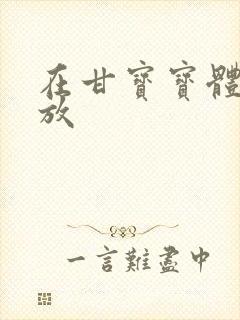 在甘寶寶體
放
一言難盡中